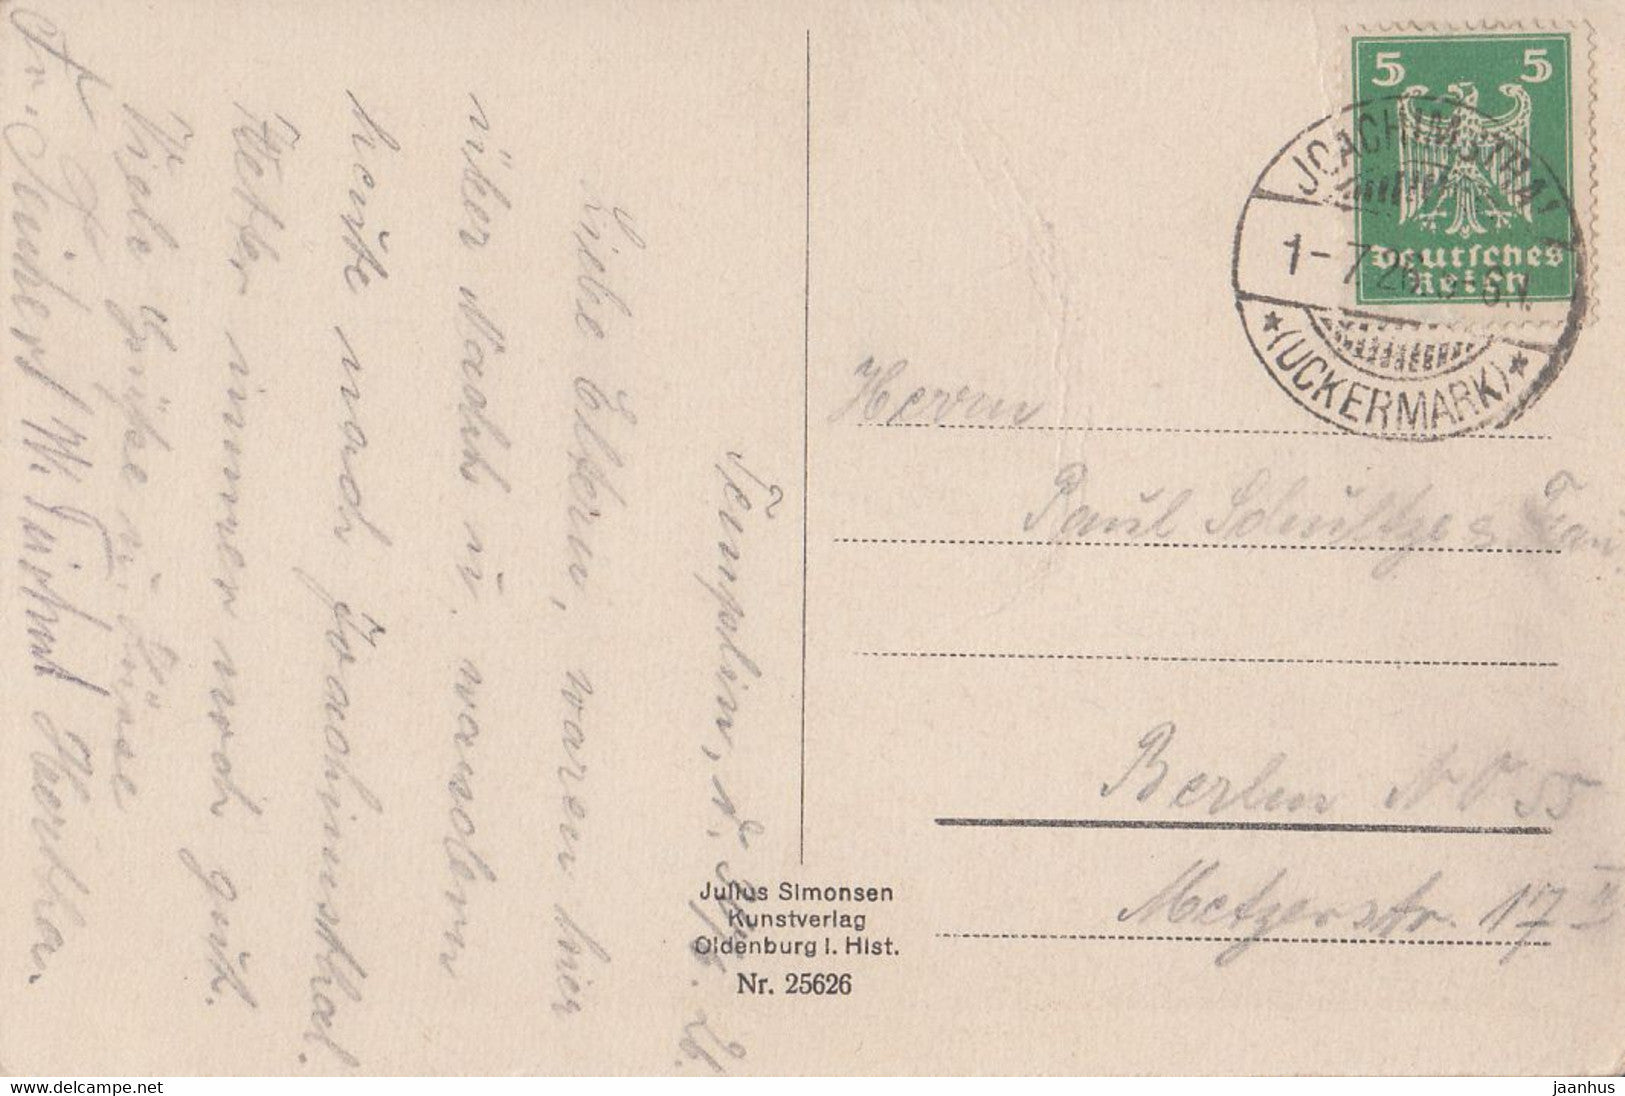 Templin, d. 30/6. 26.
Liebe Eltern, waren hier
über Nacht u. wandern
heute nach Joachimsthal.
Wetter immer noch gut.
Viele Grüße u. Küsse
Hertha.
5 5
Deutsches
Reich
JOACHIMSTHAL
1-7.26.
*(UCKERMARK)*
Herrn
Paul Schultze & Frau
Berlin NO 55
Metzerstr. 17 II
Julius Simonsen
Kunstverlag
Oldenburg i. Hlst.
Nr. 25626
www.delcampe.net
jaanhus